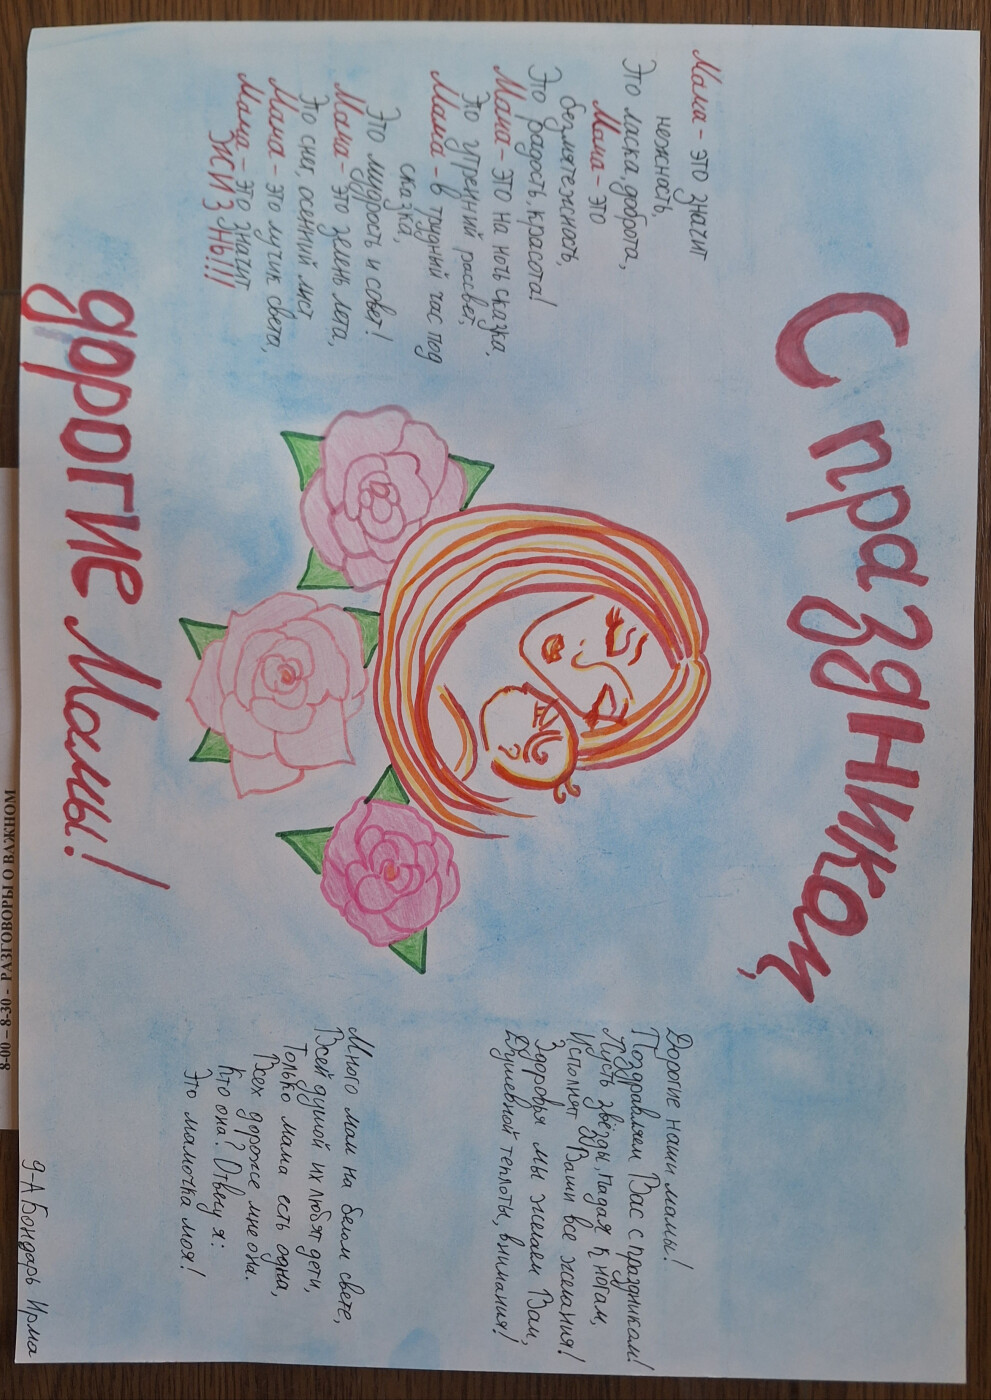 С праздником,
Мама - это значит
нежность,
Это ласка, доброта,
Мама - это
безмятежность,
Это радость, красота!
Мама - это на ночь сказка,
Это утренний рассвет,
Мама - в трудный час под
сказка,
Это мудрость и совет!
Мама - это зелень лета,
Это снег, осенний лист
Мама - это лучик света,
Мама - это значит
ЖИЗНЬ!!!
Дорогие наши мамы!
Поздравляем Вас с праздником!
Пусть звёзды, падая к ногам,
Исполнят Вами все желания!
Здоровья мы желаем Вам,
Душевной теплоты, внимания!
Много мам на белом свете,
Всей душой их любят дети,
Только мама есть одна,
Всех дороже мне она.
Кто она? Отвечу я:
Это мамочка моя!
дорогие Мамы!
9-А Бондарь Ирма
8-00 – 8-30 - РАЗГОВОРЫ О ВАЖНОМ